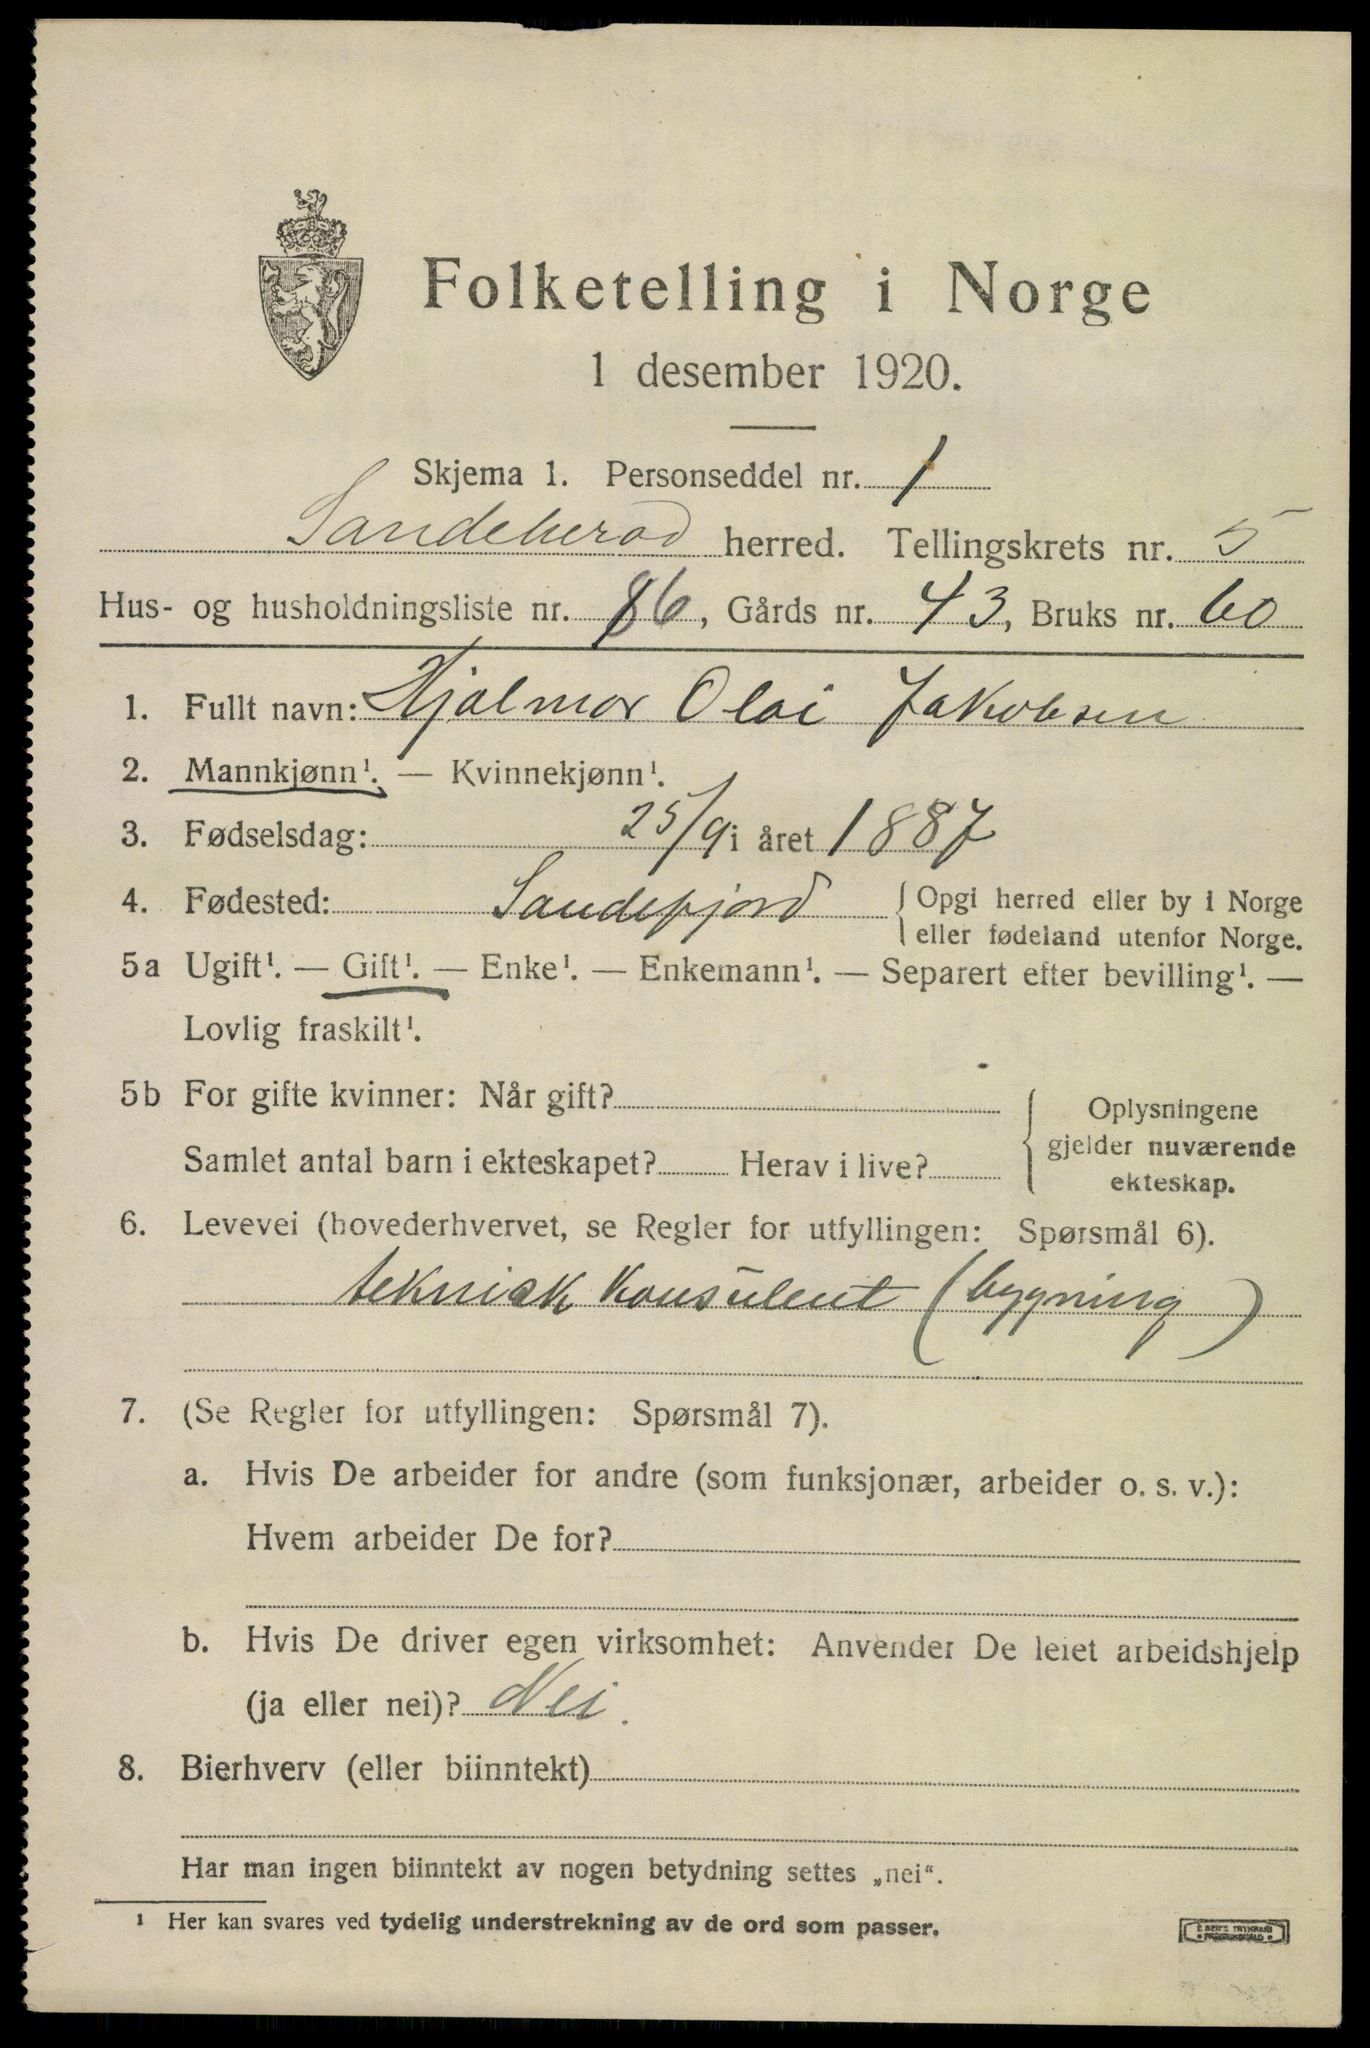 Folketelling i Norge
1 desember 1920.
Skjema 1. Personseddel nr. 1
Sandeherad herred. Tellingskrets nr. 5
Hus- og husholdningsliste nr. 86, Gårds nr. 43, Bruks nr. 60
1. Fullt navn: Hjalmar Olai Jakobsen
2. Mannkjønn¹. — Kvinnekjønn¹.
3. Fødselsdag: 25/9 i året 1887
4. Fødested: Sandefjord { Opgi herred eller by i Norge
eller fødeland utenfor Norge.
5a Ugift¹. — Gift¹. — Enke¹. — Enkemann¹. — Separert efter bevilling¹. —
Lovlig fraskilt¹.
5b For gifte kvinner: Når gift?
Samlet antal barn i ekteskapet? Herav i live?
Oplysningene
gjelder nuværende
ekteskap.
6. Levevei (hovederhvervet, se Regler for utfyllingen: Spørsmål 6).
teknisk konsulent (bygning)
7. (Se Regler for utfyllingen: Spørsmål 7).
a. Hvis De arbeider for andre (som funksjonær, arbeider o. s. v.):
Hvem arbeider De for?
b. Hvis De driver egen virksomhet: Anvender De leiet arbeidshjelp
(ja eller nei)? Nei.
8. Bierhverv (eller biinntekt)
Har man ingen biinntekt av nogen betydning settes „nei“.
¹ Her kan svares ved tydelig understrekning av de ord som passer.